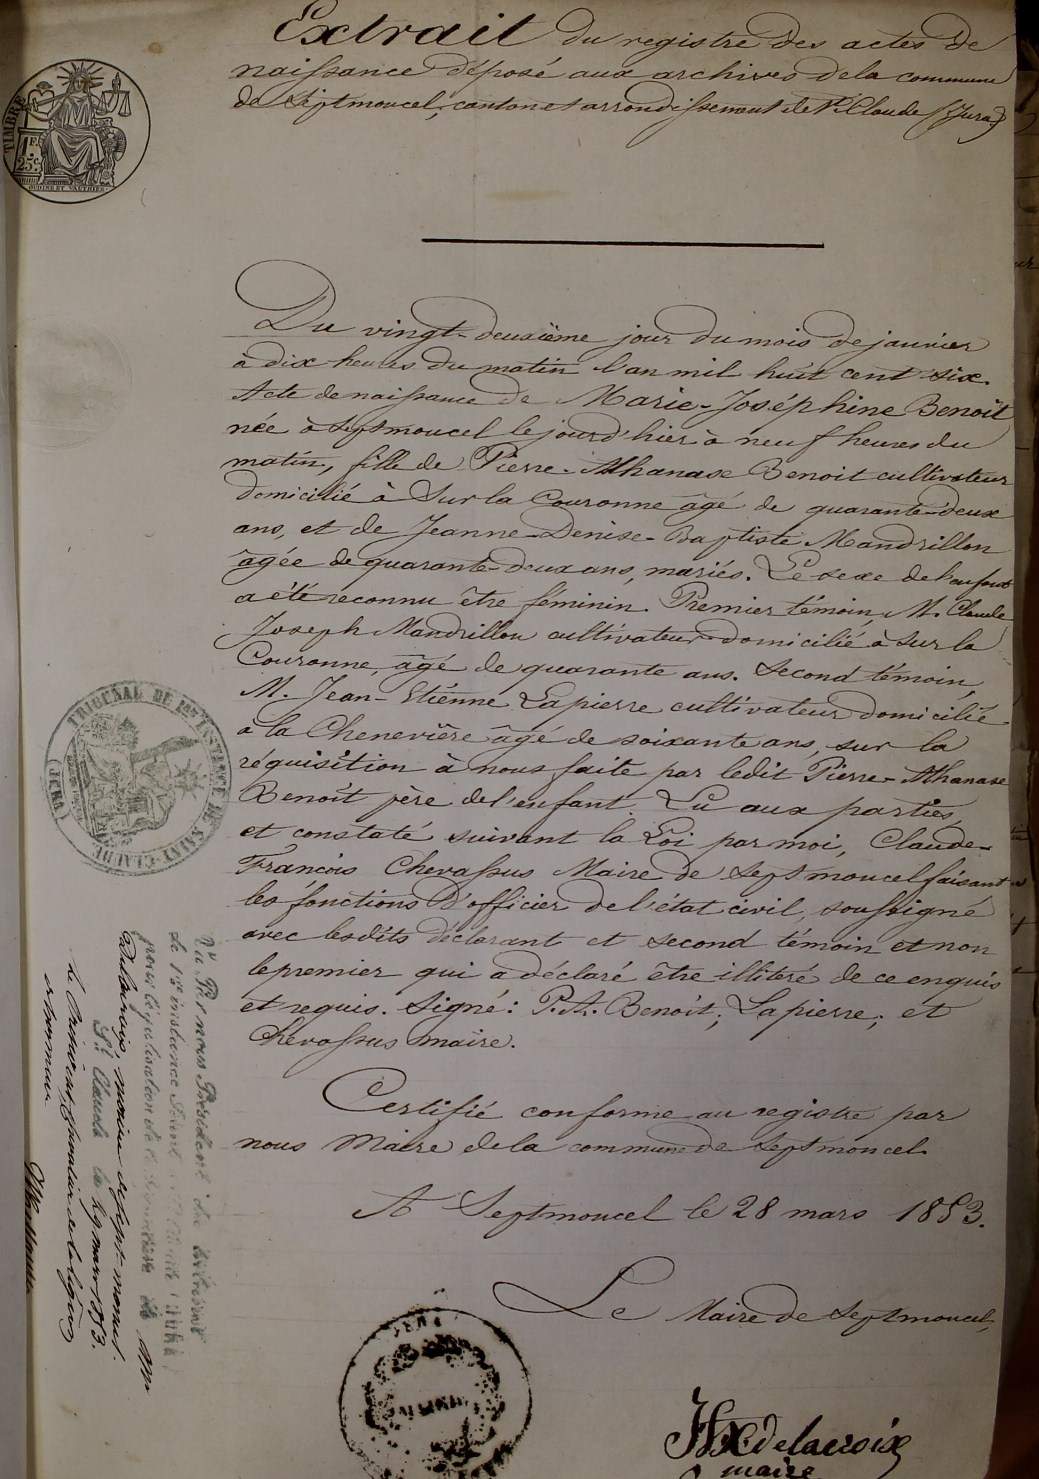 Extrait du registre des actes de
naissance déposé aux archives de la commune
de Septmoucel, canton et arrondissement de St Claude (Jura)
TIMBRE
1 F.
25 c.
Du vingt-deuxième jour du mois de janvier
à dix heures du matin l'an mil huit cent six.
Acte de naissance de Marie-Joséphine Benoit
née à Septmoucel le jourd'hier à neuf heures du
matin, fille de Pierre-Athanase Benoit cultivateur
domicilié à Sur la Couronne âgé de quarante-deux
ans, et de Jeanne-Denise-Baptiste Mandrillon
âgée de quarante-deux ans, mariés. Le sexe de l'enfant
a été reconnu être féminin. Premier témoin, M. Claude
Joseph Mandrillon cultivateur domicilié à Sur la
Couronne, âgé de quarante ans. Second témoin,
M. Jean-Etienne Lapierre cultivateur domicilié
à la Chenevière âgé de soixante ans, sur la
réquisition à nous faite par ledit Pierre-Athanase
Benoit père de l'enfant. Lu aux parties,
et constaté suivant la Loi par moi, Claude-
François Chevassus Maire de Septmoucel faisant
les fonctions d'officier de l'état civil, soussigné
avec lesdits déclarant et second témoin et non
le premier qui a déclaré être illitéré de ce enquis
et requis. Signé: P. A. Benoit; Lapierre; et
Chevassus maire.
Certifié conforme au registre par
nous Maire de la commune de Septmoucel.
A Septmoucel le 28 mars 1853.
Le Maire de Septmoucel,
delacroix
maire
MAIRIE
TRIBUNAL DE 1ère INSTANCE DE SAINT-CLAUDE (JURA)
Vu Par nous Président du tribunal
de 1re instance
pour légalisation de la signature de M
Delacroix, maire de Septmoucel.
St Claude le 29 mars 1853.